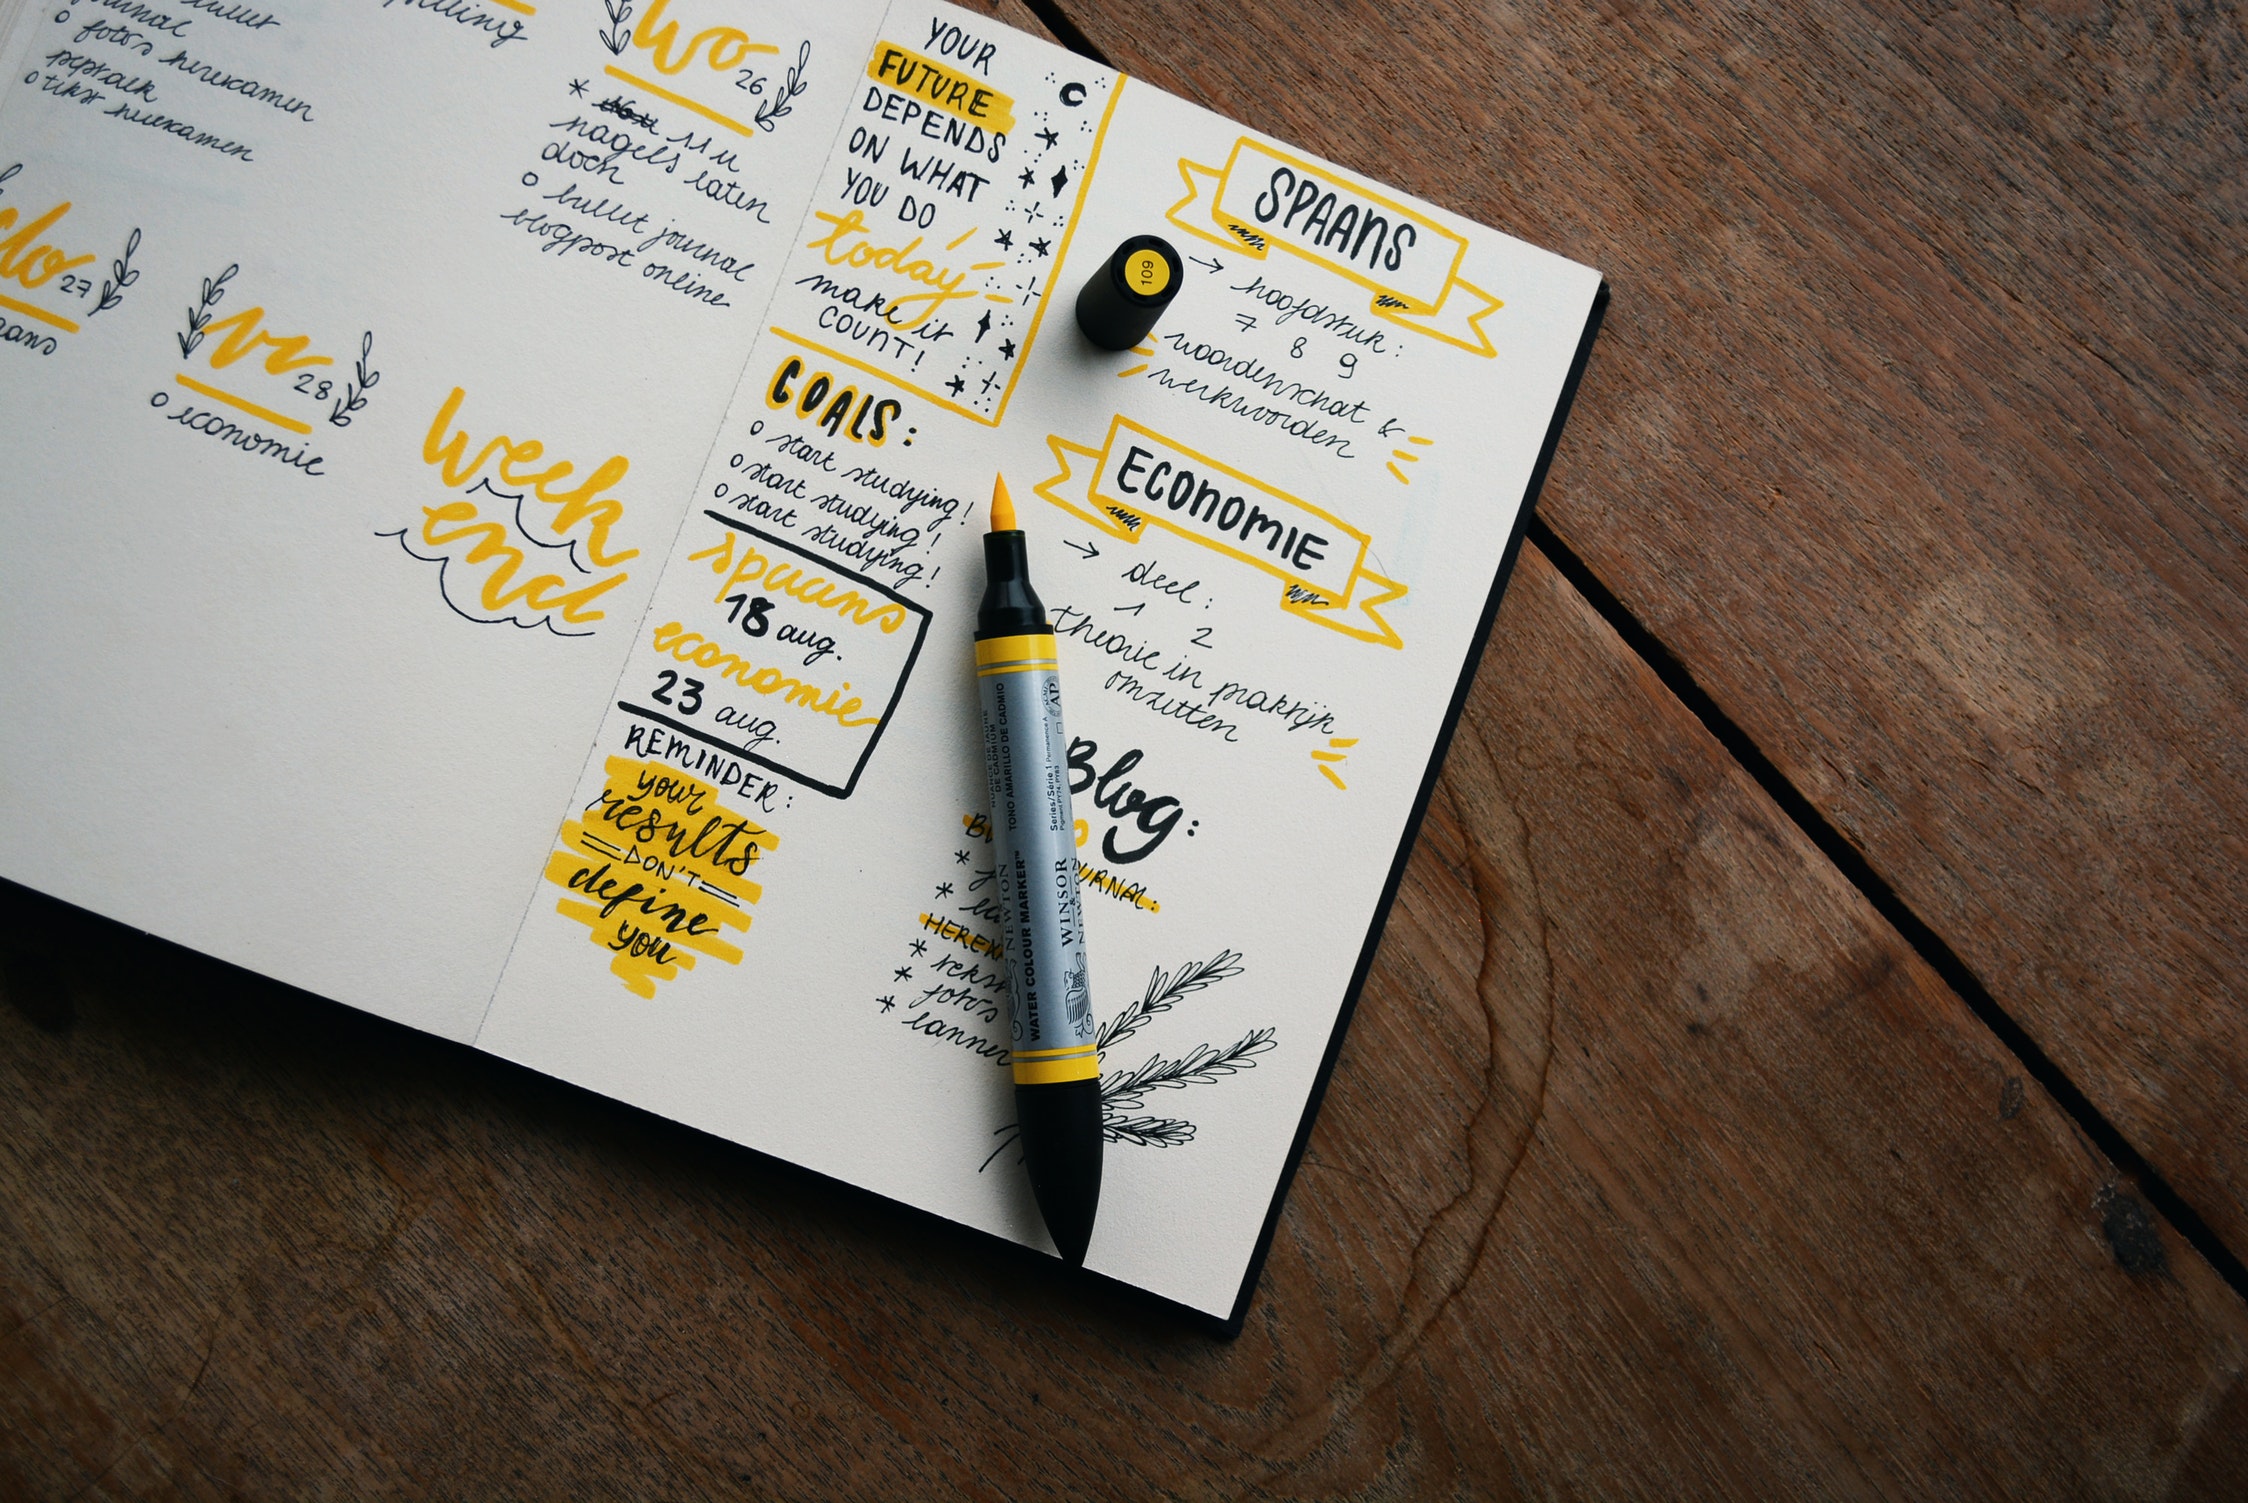 fotos herexamen
tekst herexamen
wo 26
* 11 u
nagels laten
doen
bullet journal
blogpost online
do 27
vr 28
economie
week
end
YOUR
FUTURE
DEPENDS
ON WHAT
YOU DO
today
make it
COUNT!
GOALS:
start studying!
start studying!
start studying!
spaans
18 aug.
economie
23 aug.
REMINDER:
your
results
DON'T
define
you
SPAANS
→ hoofdstuk:
7 8 9
woordenschat &
werkwoorden
ECONOMIE
→ deel:
1 2
theorie in praktijk
omzetten
Blog:
* fotos
109
WINSOR
&
NEWTON
WATER COLOUR MARKER™
TONO AMARILLO DE CADMIO
Series/Série 1
AP